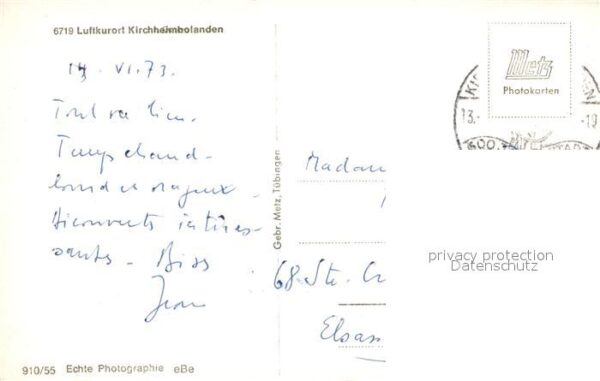 6719 Luftkurort Kirchheimbolanden
14. VI. 73.
Tout va bien.
Temps chaud-
lourd et orageux.
Découverts intéres-
santes - Bises
Jean
Gebr. Metz, Tübingen
Metz
Photokarten
13. -19
600
Madam
68 Ste. Cr
Elsas
privacy protection
Datenschutz
910/55 Echte Photographie eBe